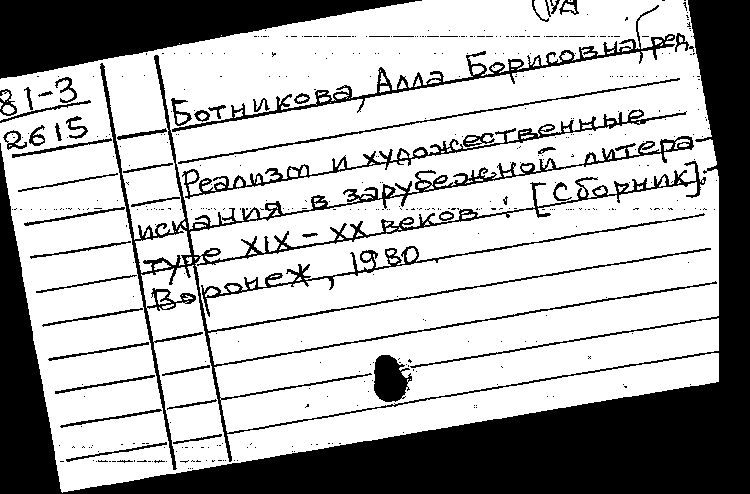 81-3
2615
Ботникова, Алла Борисовна, ред.
Реализм и художественные
искания в зарубежной литера-
туре XIX - XX веков : [Сборник].-
Воронеж, 1980.